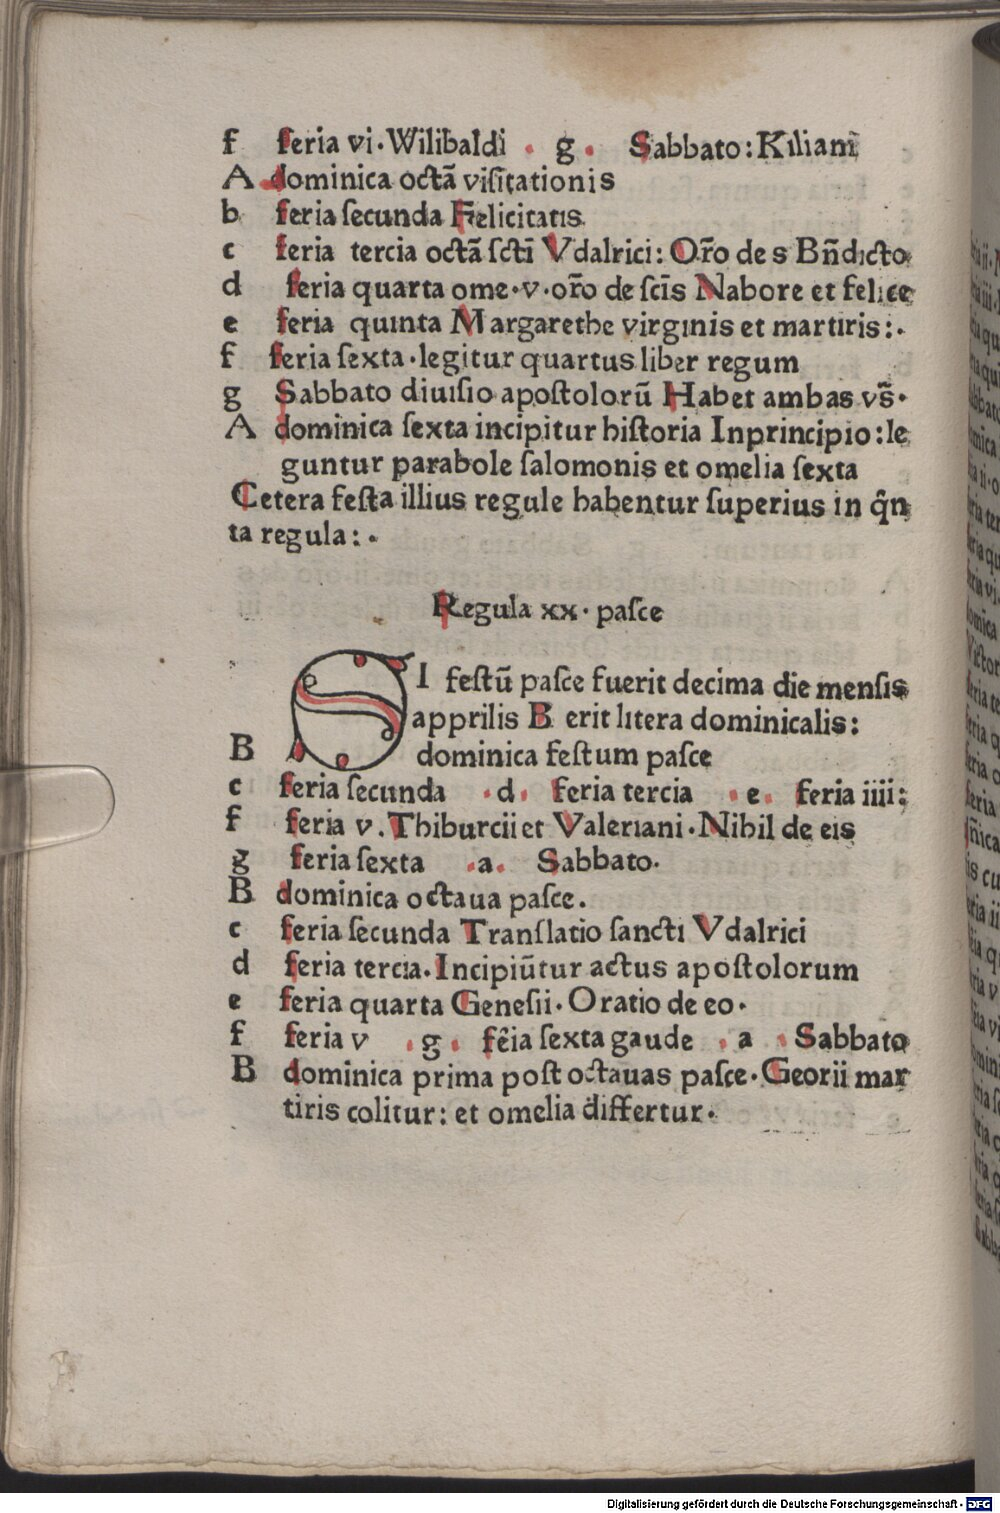 f feria vi · Wilibaldi · g · Sabbato : Kiliani
A dominica octā visitationis
b feria secunda Felicitatis
c feria tercia octā scti Vdalrici : Oro᷑ de s Bn̄dicto
d feria quarta ome · v · oro᷑ de scīs Nabore et felice
e feria quinta Margarethe virginis et martiris : ·
f feria sexta · legitur quartus liber regum
g Sabbato diuisio apostolorū Habet ambas vs̄ ·
A dominica sexta incipitur historia Inprincipio : le
guntur parabole salomonis et omelia sexta
Cetera festa illius regule habentur superius in q̄n
ta regula : ·
Regula xx · pasce
SI festū pasce fuerit decima die mensis
apprilis B erit litera dominicalis :
B dominica festum pasce
c feria secunda · d · feria tercia · e · feria iiii :
f feria v . Thiburcii et Valeriani · Nihil de eis
g feria sexta · a · Sabbato ·
B dominica octaua pasce .
c feria secunda Translatio sancti Vdalrici
d feria tercia . Incipiūtur actus apostolorum
e feria quarta Genesii · Oratio de eo ·
f feria v · g · fēia sexta gaude · a · Sabbato
B dominica prima post octauas pasce · Georii mar
tiris colitur : et omelia differtur ·
Digitalisierung gefördert durch die Deutsche Forschungsgemeinschaft - DFG